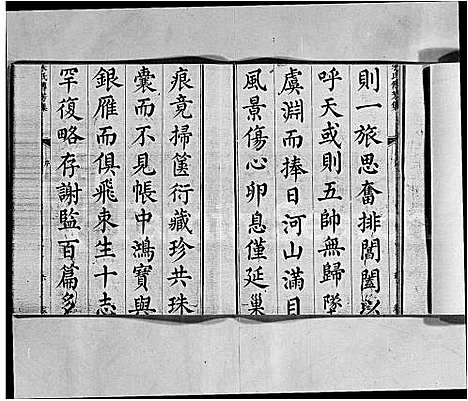 則一旅思奮排閶闔以
呼天或則五帥無歸隊
虞淵而捧日河山滿目
風景傷心卵息僅延巢
痕竟掃篋衍藏珍共珠
囊而不見帳中鴻寶與
銀雁而俱飛束生十志
罕復略存謝監百篇多